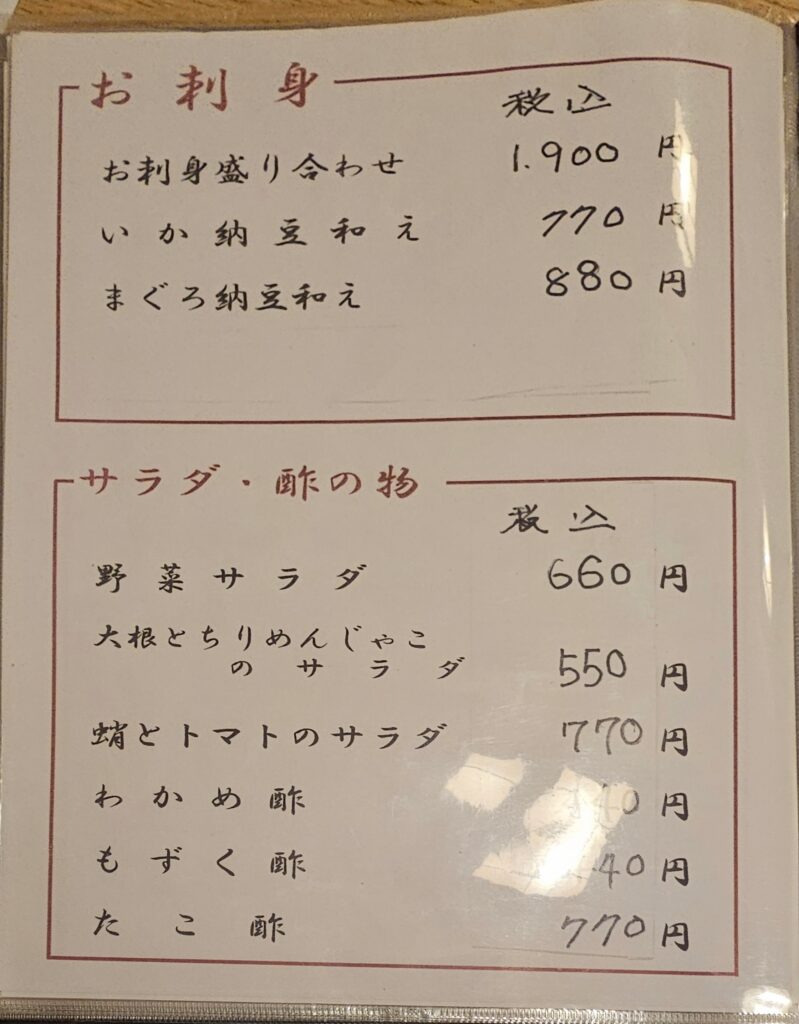 お刺身
税込
お刺身盛り合わせ 1.900 円
いか納豆和え 770 円
まぐろ納豆和え 880 円
サラダ・酢の物
税込
野菜サラダ 660 円
大根とちりめんじゃこ
のサラダ 550 円
蛸とトマトのサラダ 770 円
わかめ酢 円
もずく酢 円
たこ酢 770 円